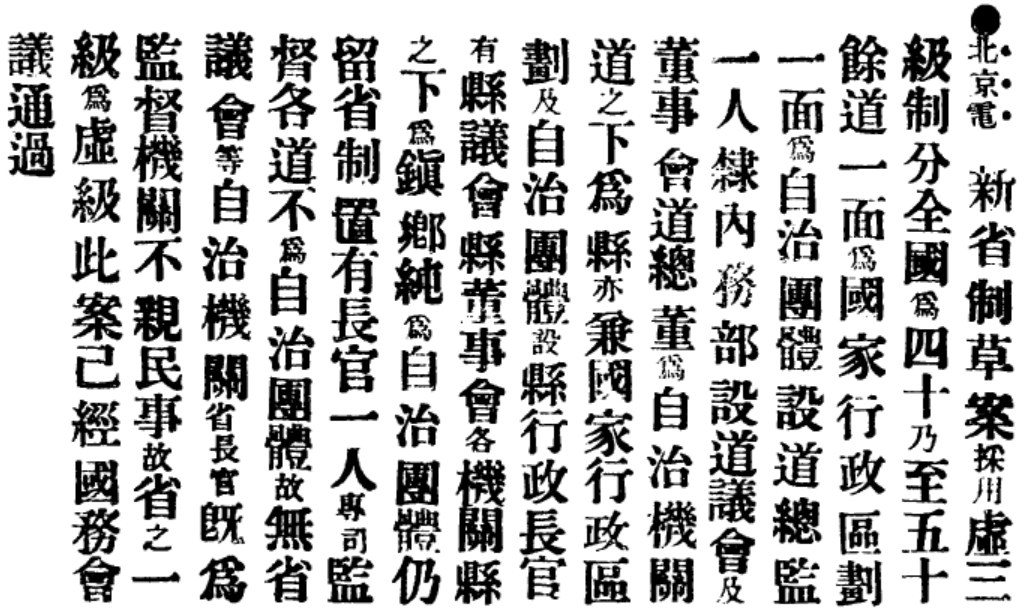 ●北京電　新省制草案採用虛三
級制分全國爲四十乃至五十
餘道一面爲國家行政區劃
一面爲自治團體設道總監
一人隸內務部設道議會及
董事會道總董爲自治機關
道之下爲縣亦兼國家行政區
劃及自治團體設縣行政長官
有縣議會縣董事會各機關縣
之下爲鎭鄉純爲自治團體仍
留省制置有長官一人專司監
督各道不爲自治團體故無省
議會等自治機關省長官旣爲
監督機關不親民事故省之一
級爲虛級此案已經國務會
議通過